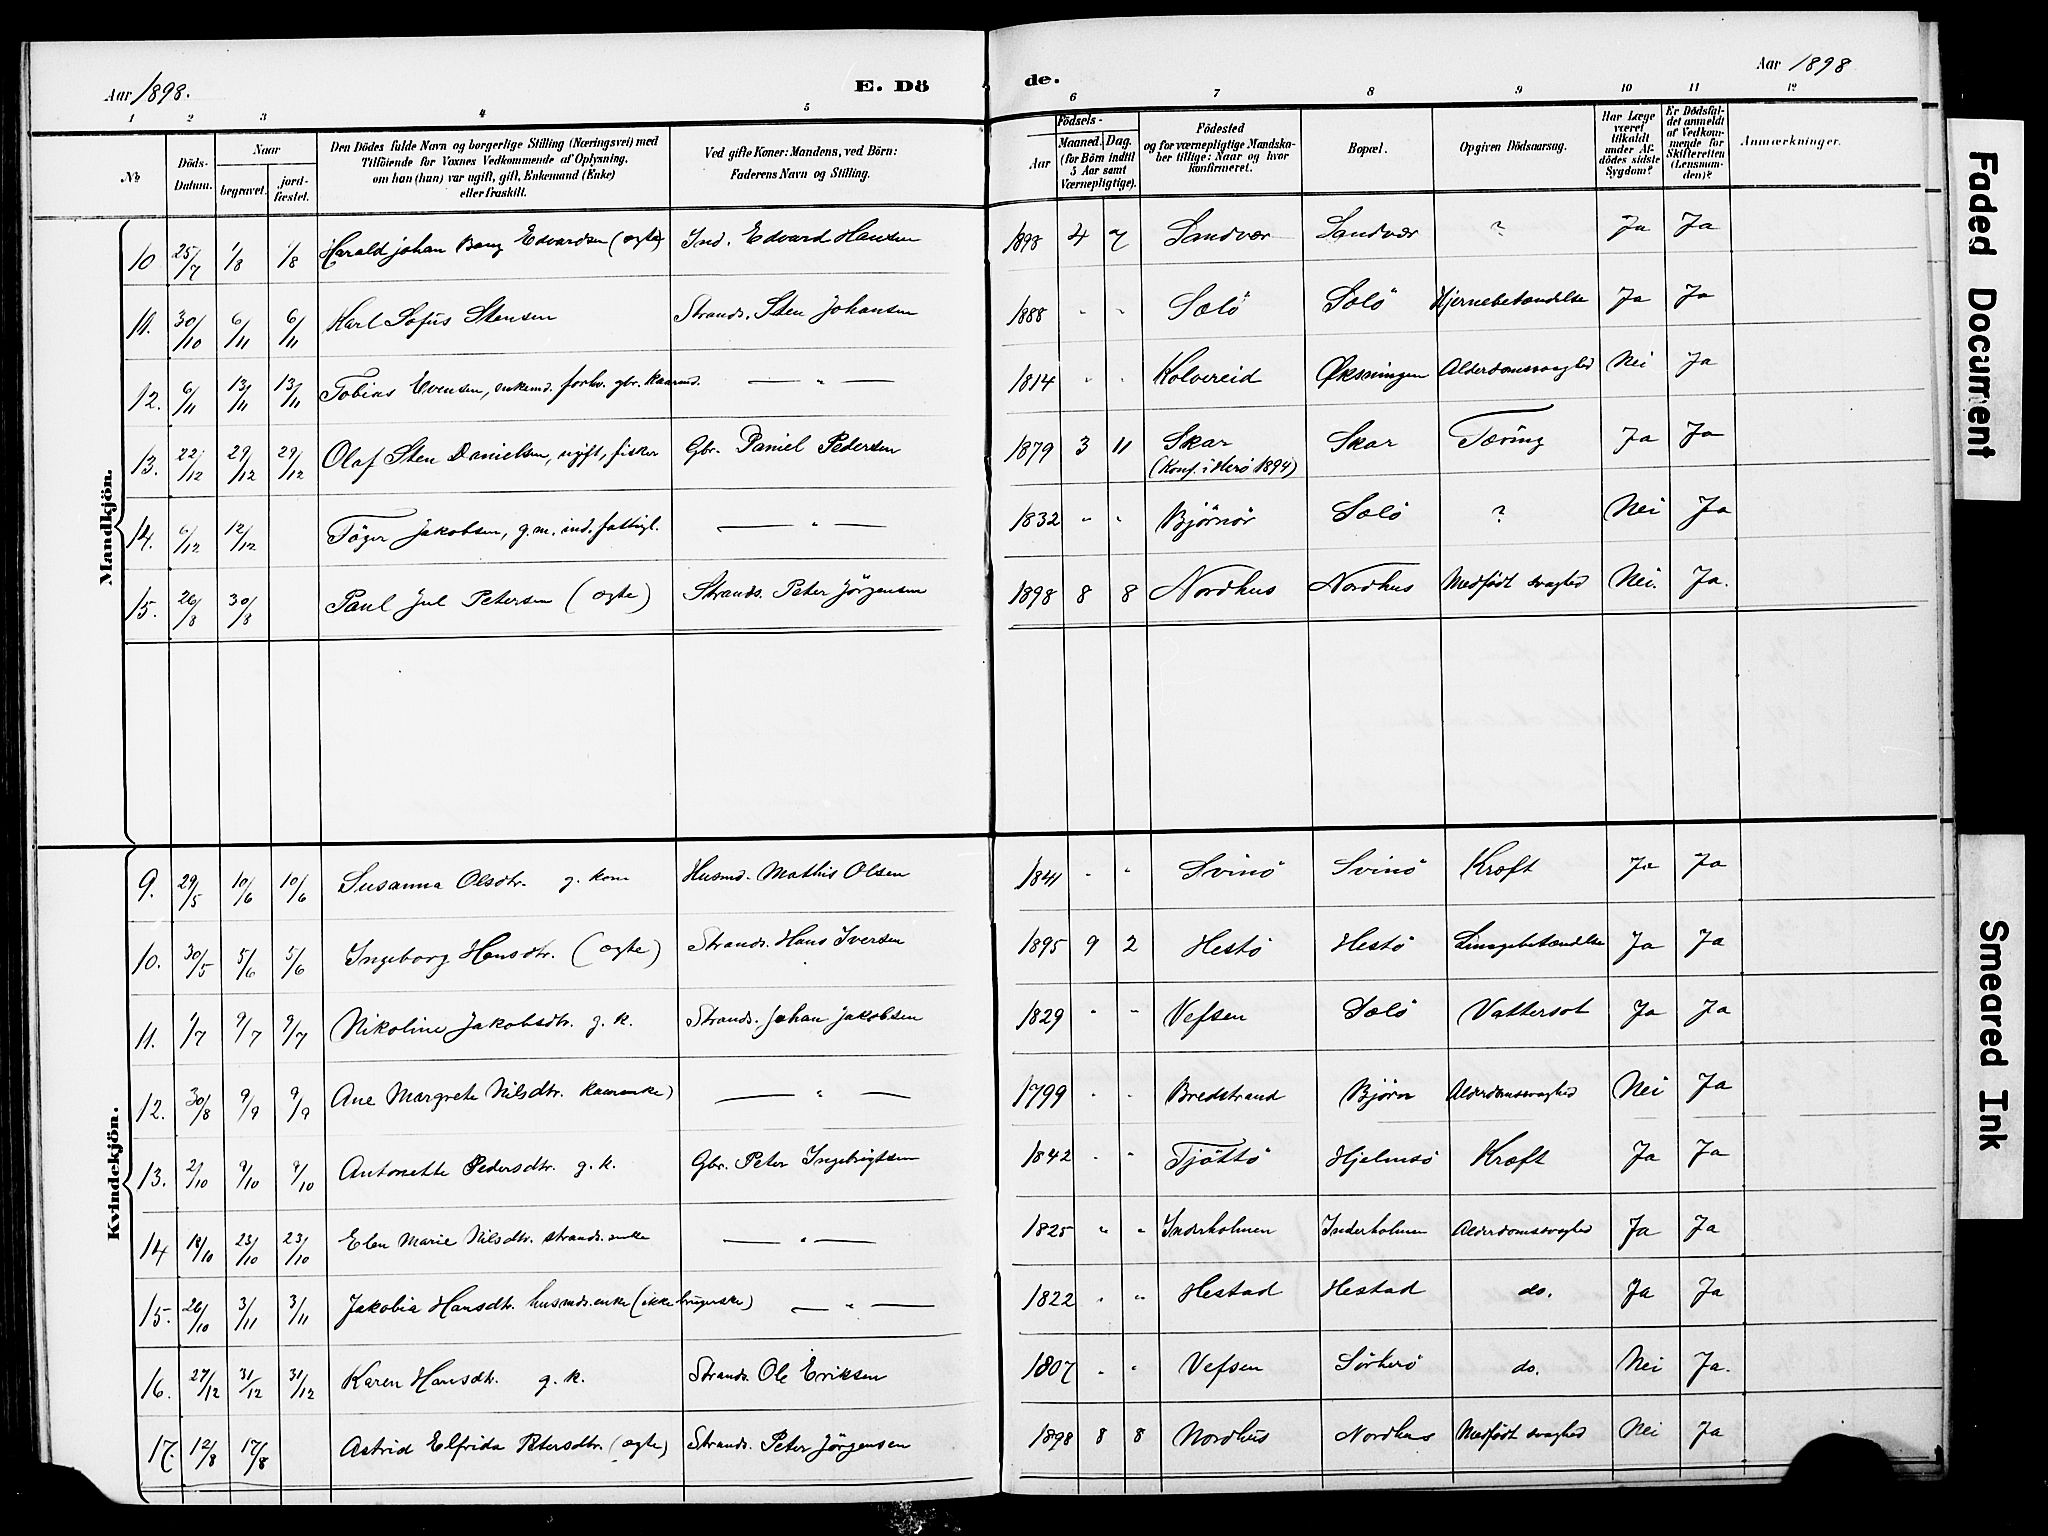 Aar 1898.
E. Dö
de.
Aar 1898
1 2 3 4 5 6 7 8 9 10 11 12
№
Döds-Datum.
Naar
begravet.
jord-fæstet.
Den Dödes fulde Navn og borgerlige Stilling (Næringsvei) med
Tilföiende for Voxnes Vedkommende af Oplysning,
om han (hun) var ugift, gift, Enkemand (Enke)
eller fraskilt.
Ved gifte Koner: Mandens, ved Börn:
Faderens Navn og Stilling.
Födsels-
Aar
Maaned. Dag.
(for Börn indtil
5 Aar samt
Værnepligtige).
Födested
og for værnepligtige Mandska-
ber tillige: Naar og hvor
konfirmeret.
Bopæl.
Opgiven Dödsaarsag.
Har Læge
været
tilkaldt
under Af-
dödes sidste
Sygdom?
Er Dödsfal-
det anmeldt
af Vedkom-
mende for
Skifteretten
(Lensman-
den)?
Anmærkninger.
Mandkjön.
10 25/7 1/8 1/8 Harald Johan Bang Edvardsen (ægte) Ind. Edvard Hansen 1898 4 7 Sandvær Sandvær ? Ja Ja
11. 30/10 6/11 6/11 Karl Sofus Stensen Strands. Sten Johansen 1888 " " Sælö Sælö Hjernebetændelse Ja Ja
12. 6/11 13/11 13/11 Tobias Evensen, enkemd. forhv. gbr. kaarmd. — " — 1814 " " Kolvereid Øksningen Alderdomssvaghed Nei Ja
13. 22/12 29/12 29/12 Olaf Sten Danielsen, ugift, fisker Gbr. Daniel Pedersen 1879 3 11 Skar Skar Tæring Ja Ja
(Konf. i Herö 1894)
14. 6/12 12/12 Töger Jakobsen, g.m. ind. fattigl. — " — 1832 " " Bjørnör Sælö ? Nei Ja
15. 26/8 30/8 Paul Jul Petersen (ægte) Strands. Peter Jörgensen 1898 8 8 Nordhus Nordhus Medfödt svaghed Nei. Ja.
Kvindekjön.
9. 29/5 10/6 10/6 Susanna Olsdtr. g. kone Husmd. Mathis Olsen 1841 " " Svinö Svinö Kræft Ja Ja
10. 30/5 5/6 5/6 Ingeborg Hansdtr. (ægte) Strands. Hans Iversen 1895 9 2 Hestö Hestö Lungebetændelse Ja Ja
11. 1/7 9/7 9/7 Nikoline Jakobsdtr. g. k. Strands. Johan Jakobsen 1829 " " Vefsen Sælö Vattersot Ja Ja
12. 30/8 9/9 9/9 Ane Margrete Nilsdtr. kaarenke) — " — 1799 " " Bredstrand Bjørn Alderdomssvaghed Nei Ja
13. 2/10 9/10 9/10 Antonette Pedersdtr. g. k. Gbr. Peter Ingebrigtsen 1842 " " Tjöttö Hjelmsö Kræft Ja Ja
14 18/10 23/10 23/10 Elen Marie Nilsdtr. strands. enke — " — 1825 " " Inderholmen Inderholmen Alderdomssvaghed Ja Ja
15. 26/10 3/11 3/11 Jakobia Hansdtr. husmds. enke (ikke brugerske) — " — 1822 " " Hestad Hestad do. Ja Ja
16. 27/12 31/12 31/12 Karen Hansdtr. g. k. Strands. Ole Eriksen 1807 " " Vefsen Sörherö do. Nei Ja.
17. 12/8 17/8 Astrid Elfrida Petersdtr. (ægte) Strands. Peter Jörgensen 1898 8 8 Nordhus Nordhus Medfödt svaghed Nei Ja
Faded Document
Smeared Ink